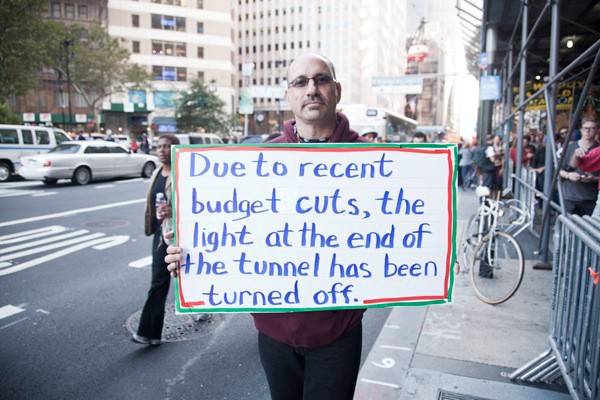 Due to recent
budget cuts, the
light at the end of
the tunnel has been
turned off.